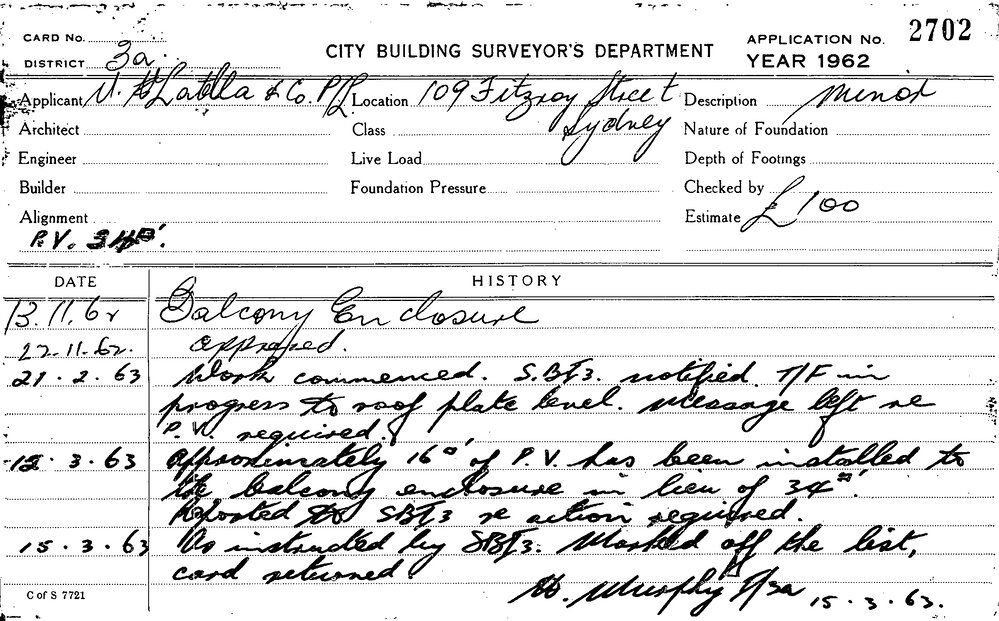 CARD No.
DISTRICT 3a
CITY BUILDING SURVEYOR'S DEPARTMENT
APPLICATION No. 2702
YEAR 1962
Applicant & Co. P/L Location 109 Fitzroy Street Description minor
Architect Class Sydney Nature of Foundation
Engineer Live Load Depth of Footings
Builder Foundation Pressure Checked by
Alignment Estimate £100
P.V. 34□'.
DATE HISTORY
13.11.62 Balcony Enclosure
22.11.62. approved.
21.2.63 Work commenced. notified. T/F in
progress to roof plate level. Message left re
P.V. required.
12.3.63 Approximately 16□' of P.V. has been installed to
the balcony enclosure in lieu of 34□'.
Reported to re action required.
15.3.63 As instructed by Marked off the list,
card returned.
C of S 7721
H. Murphy 15.3.63.